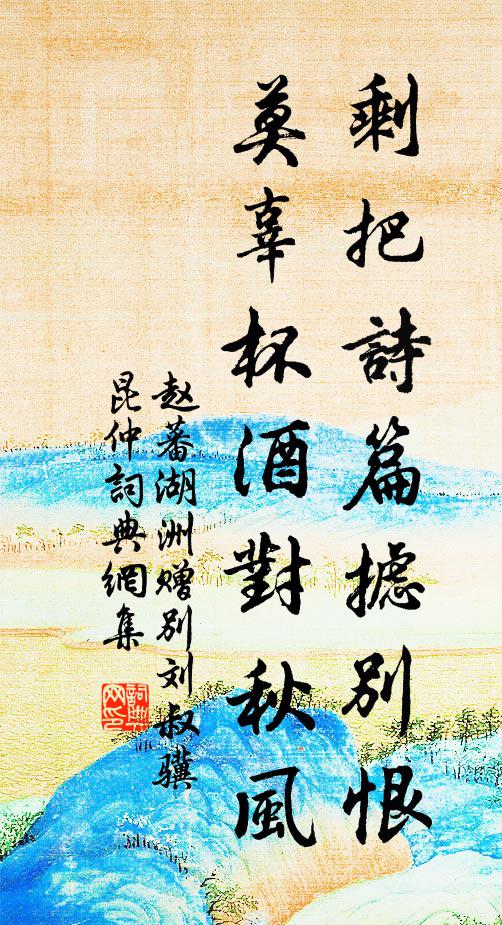 剩把詩篇攄別恨
莫辜杯酒對秋風
赵蕃湖洲赠别刘叔骥
昆仲詞典網集
詞典网印